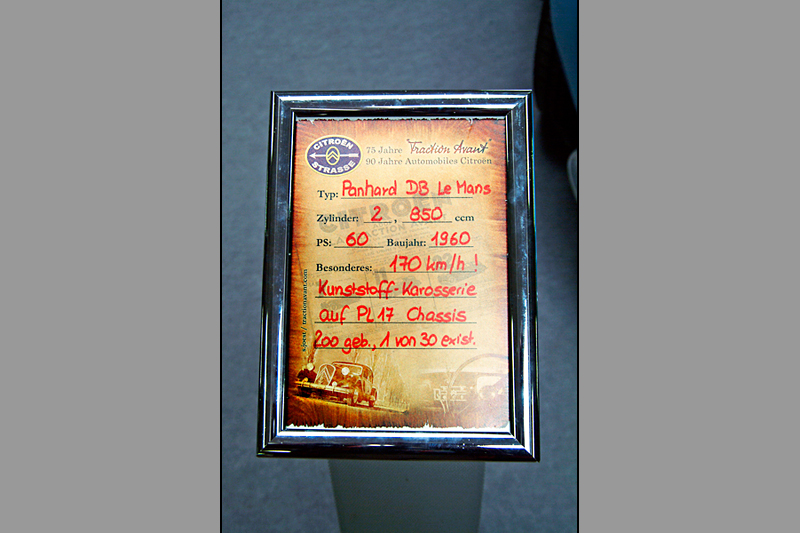 CITROËN
STRASSE
75 Jahre "Traction Avant"
90 Jahre Automobiles Citroën
Typ: Panhard DB Le Mans
Zylinder: 2, 850 ccm
PS: 60 Baujahr: 1960
Besonderes: 170 km/h!
Kunststoff-Karosserie
auf PL17 Chassis
200 geb., 1 von 30 exist.